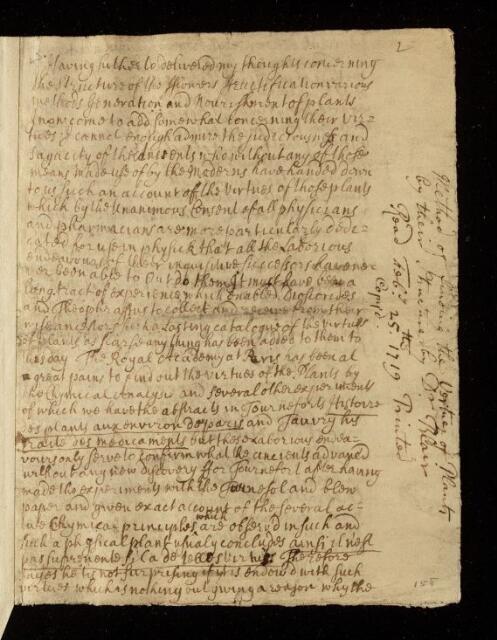 2
Having hitherto delivered my thoughts concerning
the Structure of the flowers fructification various
methods Generation and Nourishment of plants
I now come to add somewhat concerning their Vir-
tues I cannot enough admire the judiciousness and
Sagacity of the Ancients who without any of those
means made use of by the Moderns have handed down
to us such an account of the virtues of those plants
which by the Unanimous Consent of all physicians
and pharmacians are more particularly dedi-
cated for use in physick that all the Laborious
endeavours of their inquisitive Successors have ne-
ver been able to out do them It must have been a
Long tract of experience which enabled Dioscorides
and Theophrastus to collect and receive from their
Ancestors such a Lasting catalogue of the virtues
of plants as scarse any thing has been added to them to
this day The Royal Academy at Paris has been at
great pains to find out the virtues of the plants by
the chymical Analysis and several other experiments
of which we have the abstracts in Tourneforts Histoire
des plantes aux environ de paris and Tauvry his
traite des medicaments but these Laborious endea-
vours only serve to confirm what the ancients advanced
without any new discovery for Tournefort after having
made the experiments with the Tournesol and blew
paper and given exact account of the several ac-
tive Chymical principles which are observd in such and
such a physical plant usualy concludes ainsi il nest
pas surprenant sil a de telles virtues Therefore
says he tis not surprising if it is endowd with such
virtues which is nothing but giving a reason why the
Method of finding the Vertues of Plants
by their Structure by Dr Blair
Read Feb. 25th 1719 Printed
Copied
158